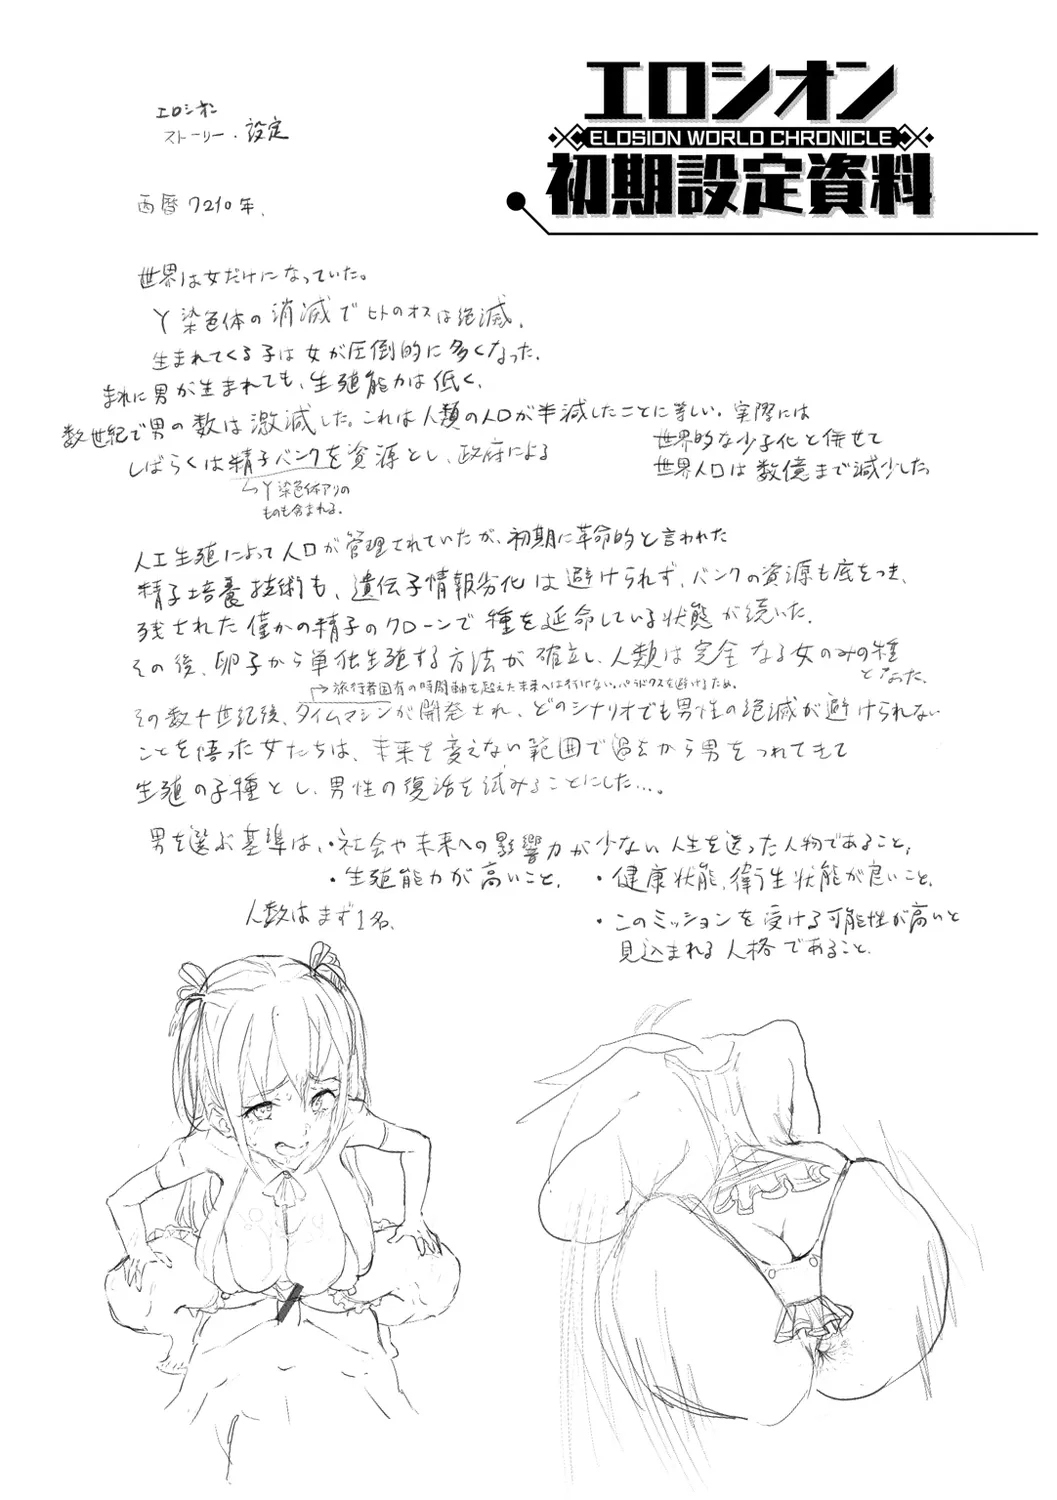 エロシオン
ELOSION WORLD CHRONICLE
初期設定資料
エロシオン
ストーリー・設定
西暦7210年、
世界は女だけになっていた。
Y染色体の消滅でヒトのオスは絶滅、
生まれてくる子は女が圧倒的に多くなった。
まれに男が生まれても、生殖能力は低く、
数世紀で男の数は激減した。これは人類の人口が半減したことに等しい。実際には
世界的な少子化と併せて
世界人口は数億まで減少した。
しばらくは精子バンクを資源とし、政府による
↳Y染色体アリの
ものも含まれる。
人工生殖によって人口が管理されていたが、初期に革命的と言われた
精子培養技術も、遺伝子情報劣化は避けられず、バンクの資源も底をつき、
残された僅かの精子のクローンで種を延命している状態が続いた。
その後、卵子から単独生殖する方法が確立し、人類は完全なる女のみの種
となった。
旅行者固有の時間軸を超えた未来へは行けない。パラドクスを避けるため。
その数十世紀後、タイムマシンが開発され、どのシナリオでも男性の絶滅が避けられない
ことを悟った女たちは、未来を変えない範囲で過去から男をつれてきて
生殖の子種とし、男性の復活を試みることにした…。
男を選ぶ基準は、・社会や未来への影響力が少ない人生を送った人物であること、
・生殖能力が高いこと、
・健康状態、衛生状態が良いこと、
・このミッションを受ける可能性が高いと
見込まれる人格であること、
人数はまず1名、